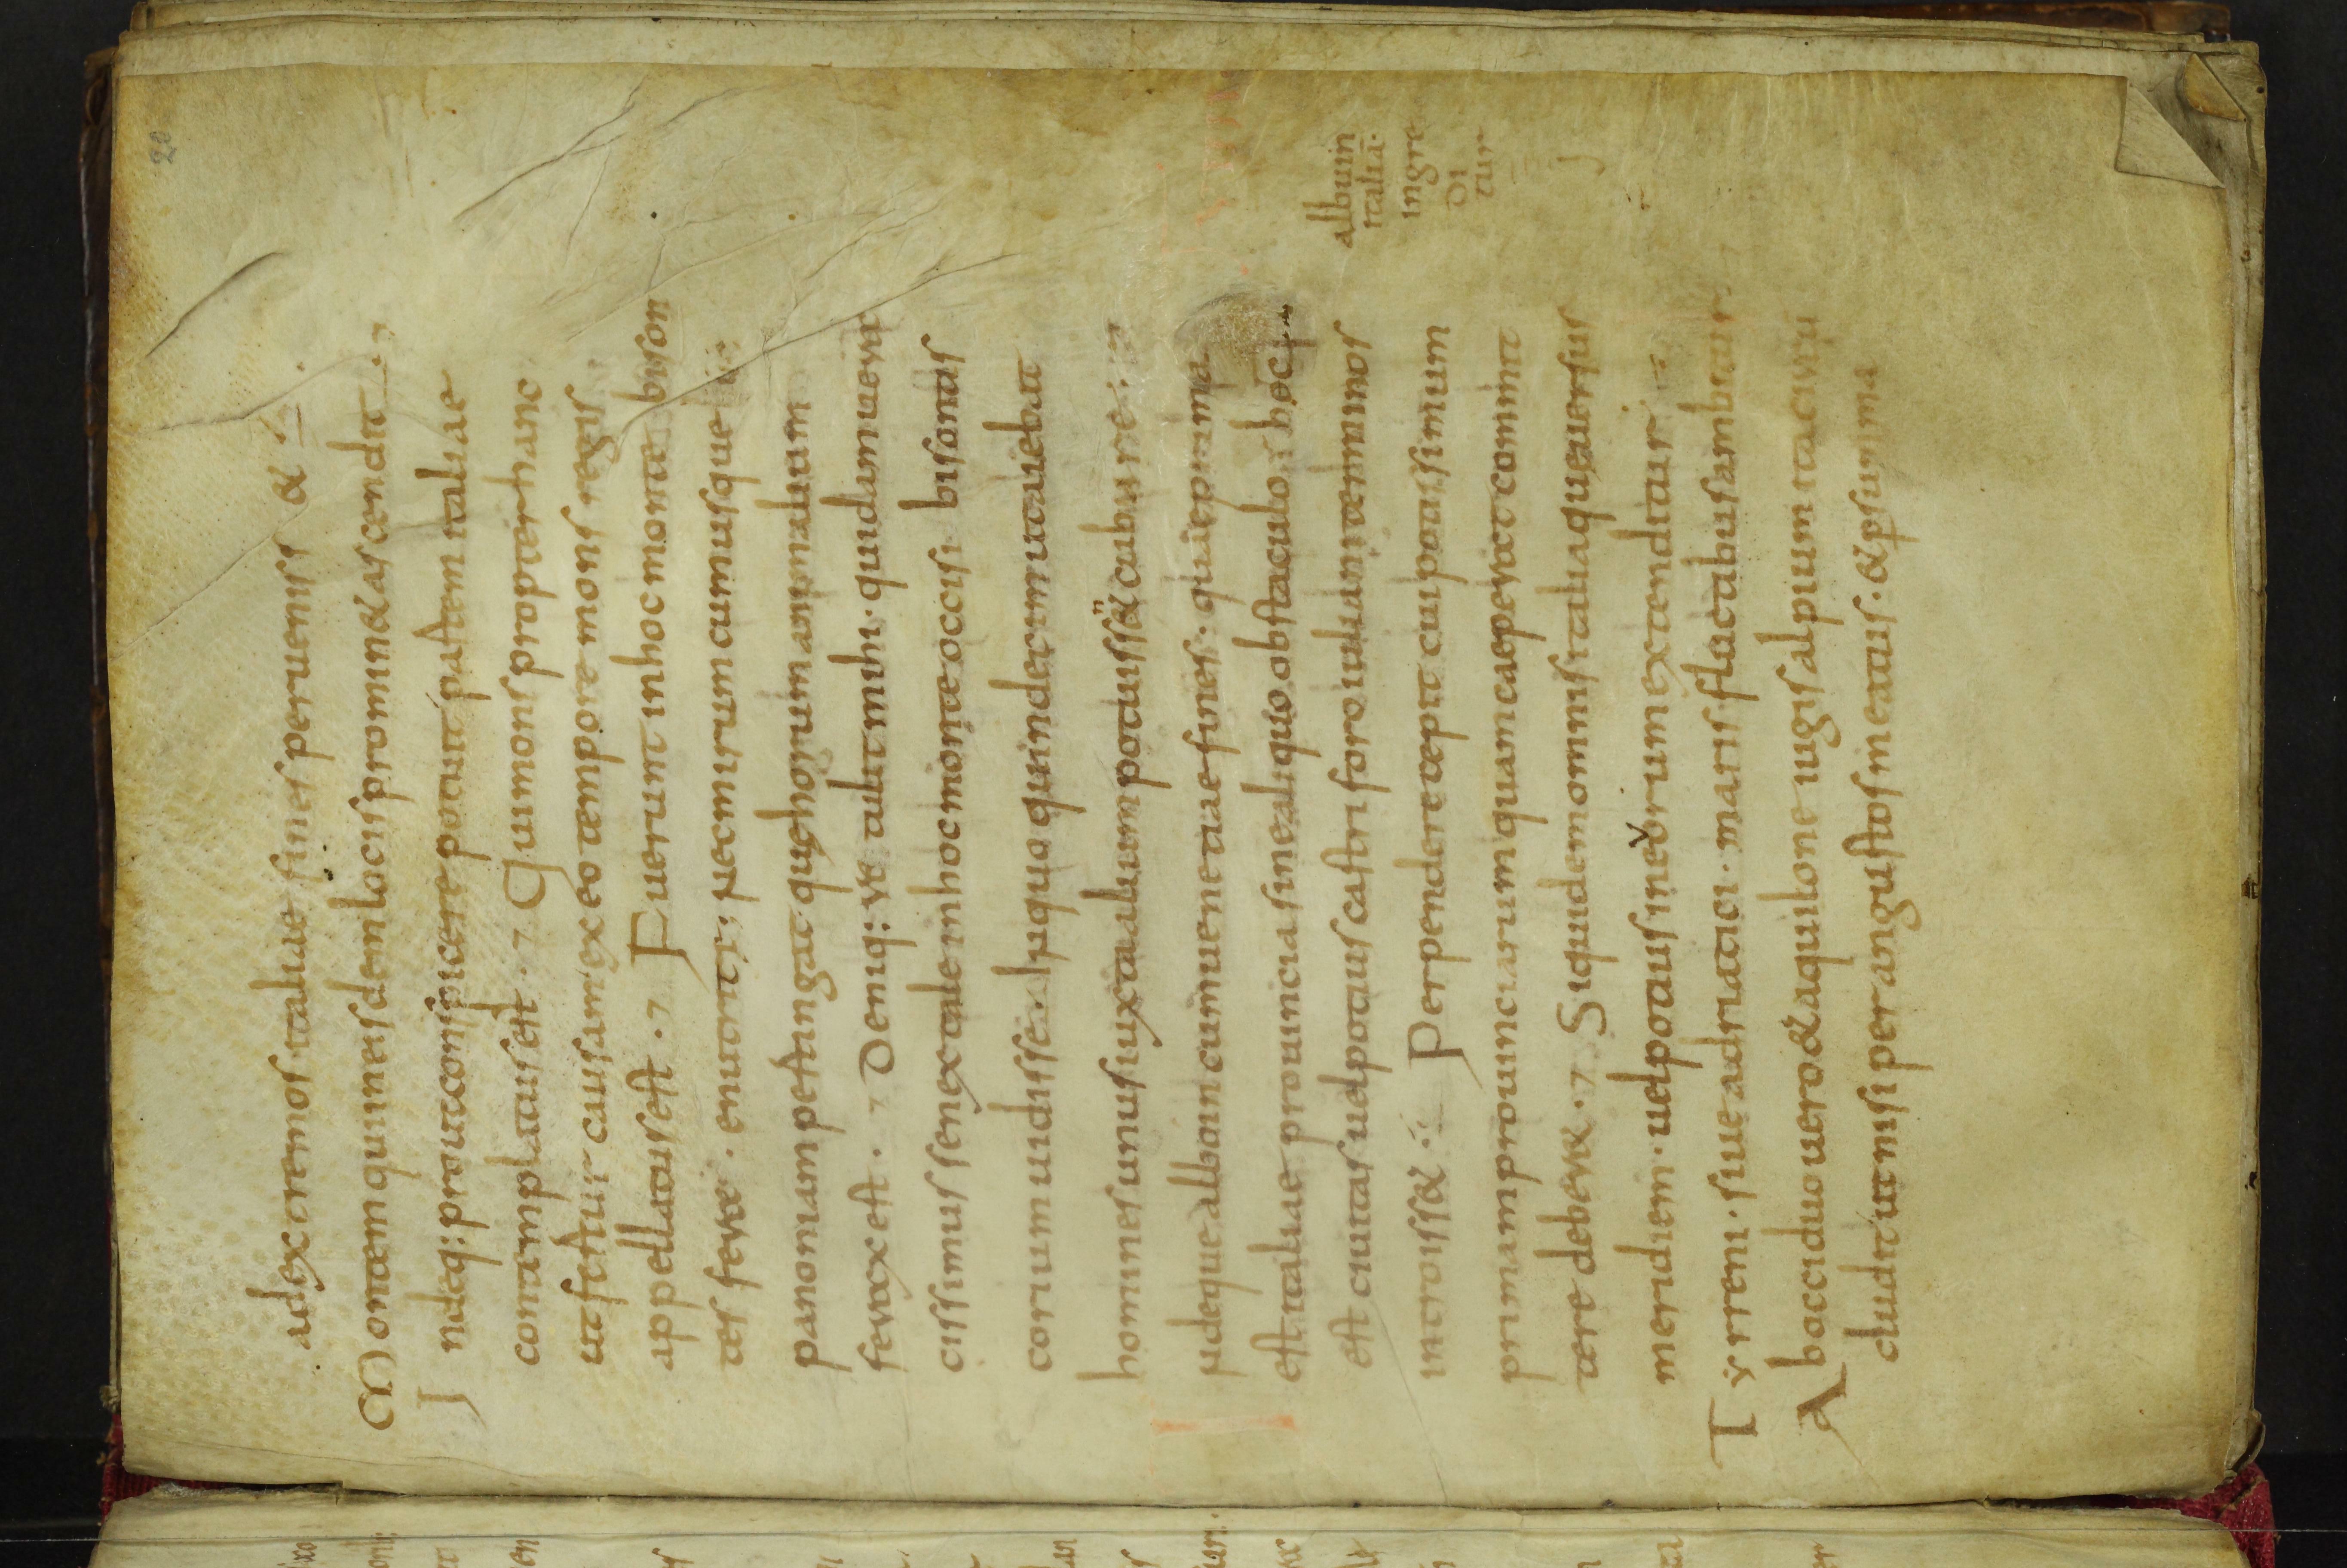 20
ad extremos italiae fines pervenisset
Montem qui in eisdem locis prominet ascendit.
Indeq: prout conspicere potuit partem italiae
contemplatus est. Qui mons propter hanc
ut fertur causam ex eo tempore mons regis
appellatus est. Ferunt in hoc monte bison
tes feras. enutriri; nec mirum cum usque
panoniam pertingat quę horum animalium
ferax est. Deniq: retulit mihi. quidam vera
cissimus senex tale in hoc monte occisi bisontis
corium vidisse in quo quindecim ut aiebat
homines unus iuxta alium potuisset cubare:
Indeque alboin cum venetiae fines. quae prima
est italiae provincia sine aliquo obstaculo. hoc
est civitatis vel potius castri foroiuliani terminos
introisset: Perpendere cepit cui potissimum
primam provinciarum quam caeperat commit
tere deberet. Siquidem omnis italia quę versus
meridiem. vel potius in eorum extenditur.
Tyrreni. sive adriatici. maris fluctibus ambitur.
Ab occiduo vero & aquilone iugis alpium ita
cluditur ut nisi per angustos meatus. & p summa
albuin
italiā.
ingre
di
tur